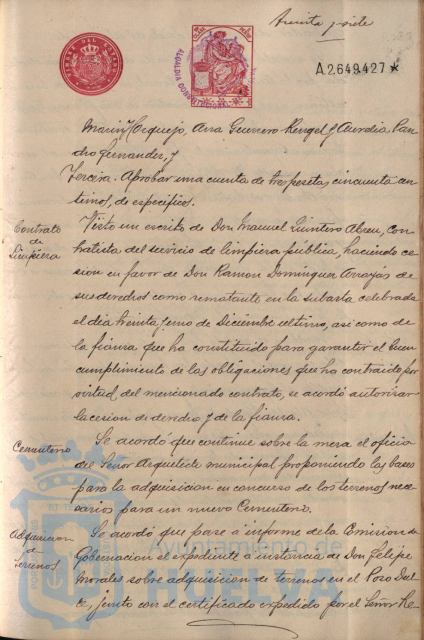 treinta y siete
A2649427*
Marin Orquejo, Ana Guerrero Rengel y Aurelia Pan
dro Fernandez, y
Tercera. Aprobar una cuenta de tres pesetas, cincuenta cen
timos, de especificos.
Contrato
de
Limpiera
Visto un escrito de Don Manuel Quintero Abreu, con
tratista del servicio de limpiera pública, haciendo ce
sion en favor de Don Ramon Dominguez Arrayás de
sus derechos como rematante en la subasta celebrada
el dia treinta y uno de Diciembre ultimo, asi como de
la fianza que ha constituido para garantir el buen
cumplimiento de las obligaciones que ha contraido por
virtud del mencionado contrato, se acordó autorizar
la cesion de derecho y de la fianza.
Cementerio
Se acordó que continue sobre la mesa el oficio
del Señor Arquitecto municipal proponiendo las bases
para la adquisicion en concurso de los terrenos nece
sarios para un nuevo Cementerio.
Adquisicion
de
terrenos
Se acordó que pase a informe de la Comision de
Gobernacion el expediente a instancia de Don Felipe
Morales sobre adquisicion de terrenos en el Pozo Dul
ce, junto con el certificado expedido por el Señor Re-
Ayuntamiento de
HUELVA